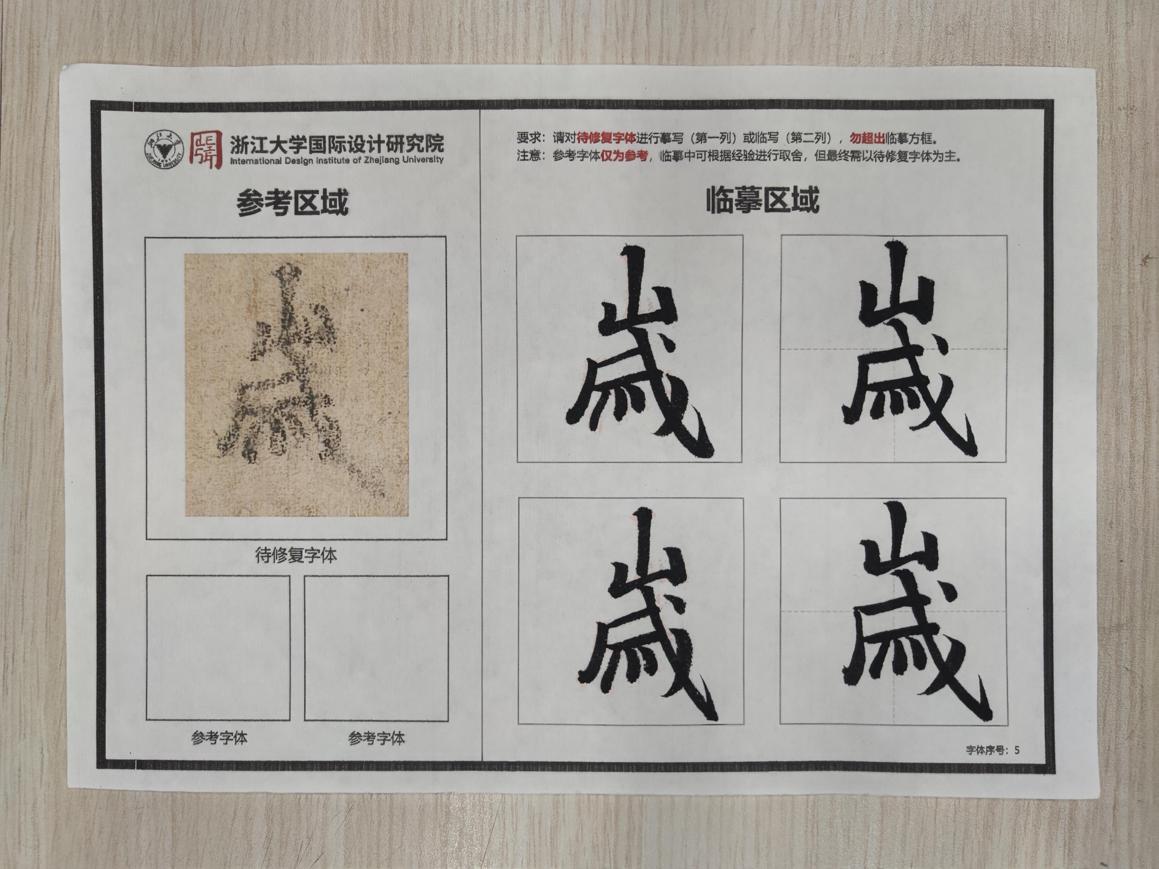 浙江大学国际设计研究院
International Design Institute of Zhejiang University
参考区域
嵗
待修复字体
参考字体 参考字体
要求：请对待修复字体进行摹写（第一列）或临写（第二列），勿超出临摹方框。
注意：参考字体仅为参考，临摹中可根据经验进行取舍，但最终需以待修复字体为主。
临摹区域
嵗 嵗
嵗 嵗
字体序号：5